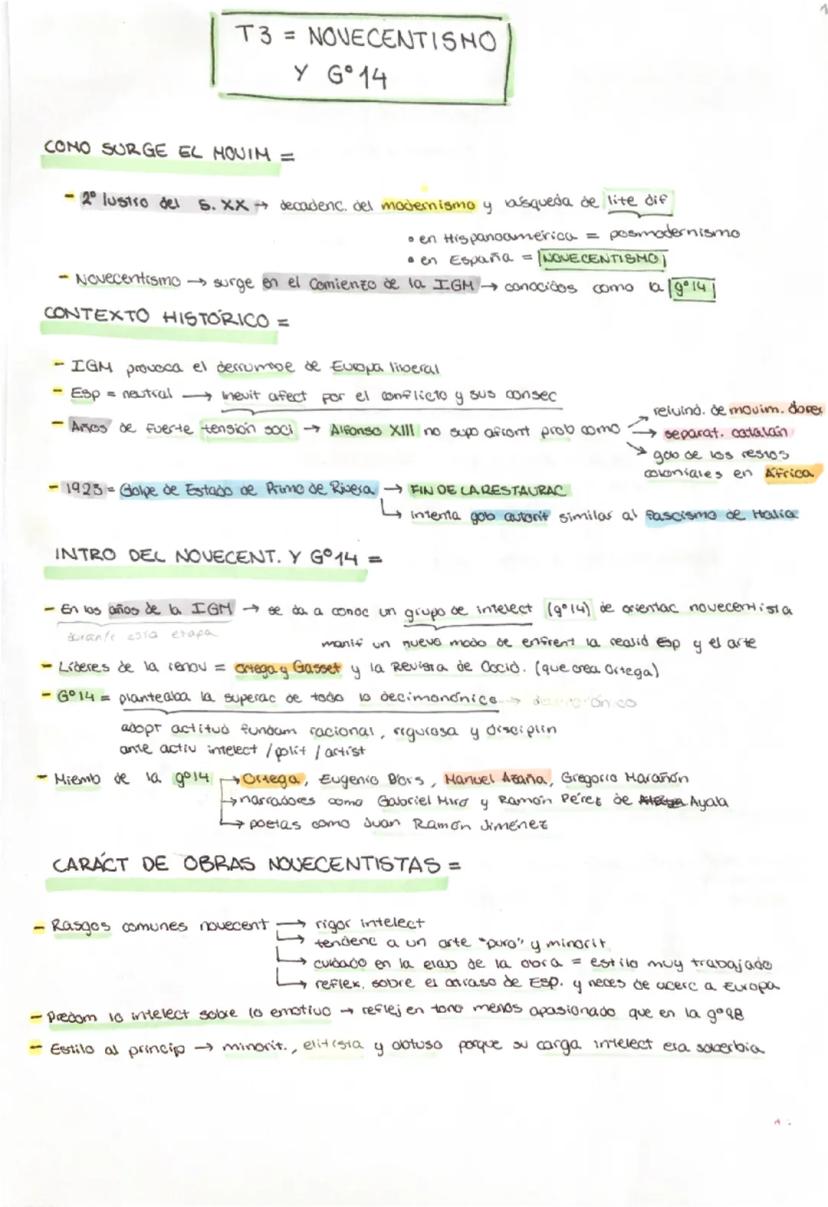 1
T3 = NOVECENTISMO
Y Gº14
COMO SURGE EL MOVIM =
- 2º lustro del S. XX → decadenc. del modernismo y búsqueda de lite dif
• en Hispanoamérica = posmodernismo
• en España = NOVECENTISMO
- Novecentismo → surge en el comienzo de la IGM → conocidos como la gº14
CONTEXTO HISTÓRICO =
- IGM provoca el derrumbe de Europa liberal
- Esp = neutral → inevit afect por el conflicto y sus consec
- Años de fuerte tensión soci → Alfonso XIII no supo afront prob como → reivind. de movim. obrer
→ separat. catalán
→ gob de los restos
coloniales en África
- 1923 = Golpe de Estado de Primo de Rivera → FIN DE LA RESTAURAC
↳ intenta gob autorit similar al fascismo de Italia
INTRO DEL NOVECENT. Y Gº14 =
- En los años de la IGM → se da a conoc un grupo de intelect (gº14) de orientac novecentista
durante esta etapa
manif un nuevo modo de enfrent la realid Esp y el arte
- Líderes de la renov = Ortega y Gasset y la Revista de Occid. (que crea Ortega)
- Gº14 = planteaba la superac de todo lo decimonónico →
adopt actitud fundam racional, rigurosa y disciplin
ante activ intelect / polit / artist
- Miemb de la gº14 → Ortega, Eugenio D'ors, Manuel Azaña, Gregorio Marañón
→ narradores como Gabriel Miró y Ramón Pérez de Ayala
↳ poetas como Juan Ramón Jiménez
CARÁCT DE OBRAS NOVECENTISTAS =
- Rasgos comunes novecent → rigor intelect
↳ tendenc a un arte "puro" y minorit.
↳ cuidado en la elab de la obra = estilo muy trabajado
↳ reflex. sobre el atraso de Esp. y neces de acerc a Europa
- Predom lo intelect sobre lo emotivo → reflej en tono menos apasionado que en la gº98
- Estilo al princip → minorit., elitista y obtuso porque su carga intelect era soberbia